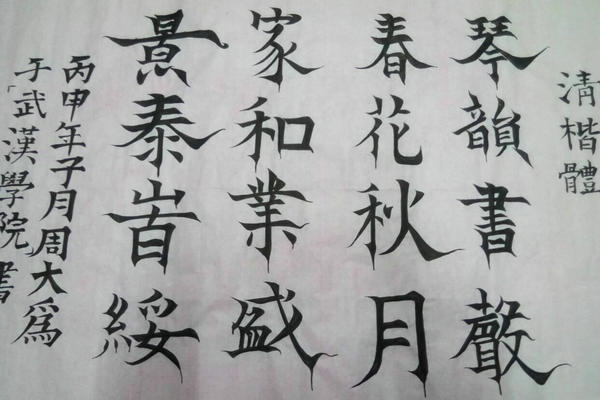 清楷體
琴韻書聲
春花秋月
家和業盛
景泰旹綏
丙申年子月周大爲
于「武漢學院」書